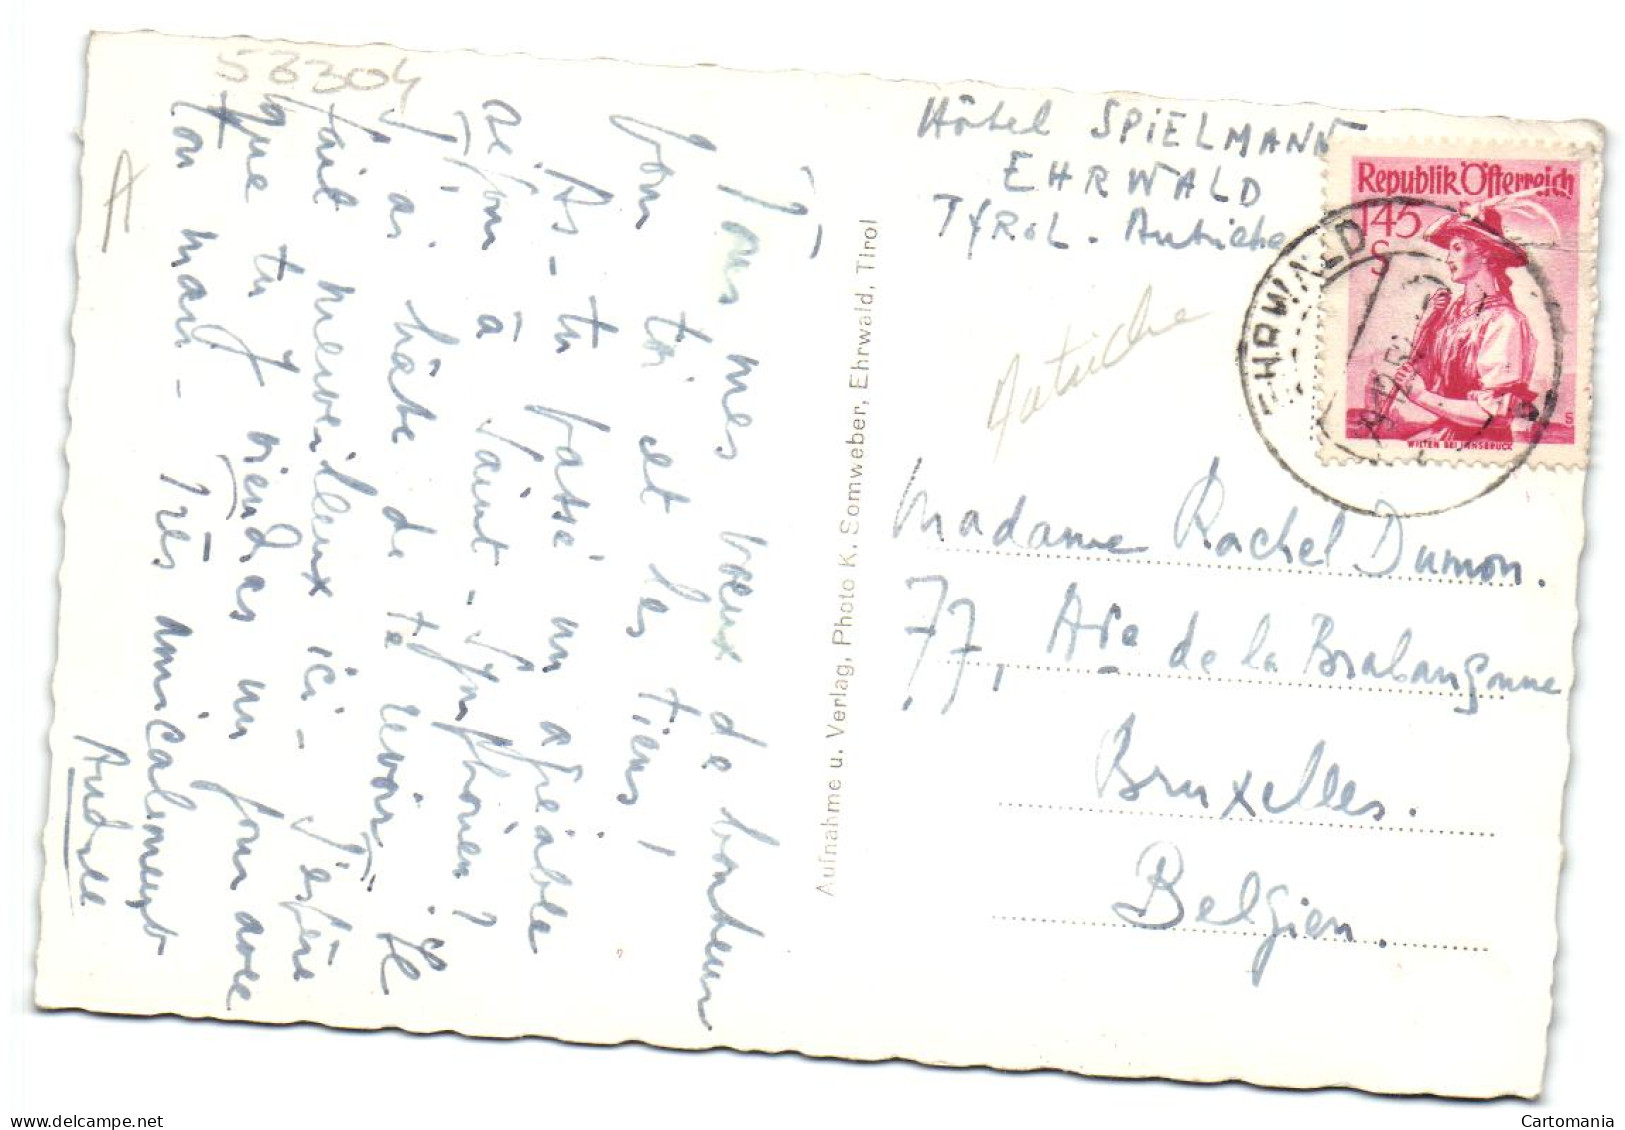 53304
A
Tous mes vœux de bonheur
pour toi et les tiens!
As-tu passé un agréable
réveillon à Saint-Symphorien?
J'ai hâte de te revoir. Il
fait merveilleux ici - J'espère
que tu viendras un jour avec
ton mari - Très amicalement
Andrée
Aufnahme u. Verlag, Photo K. Somweber, Ehrwald, Tirol
Hôtel SPIELMANN
EHRWALD
TYROL - Autriche
Autriche
Republik Österreich
1.45
S
WILTEN BEI INNSBRUCK
EHRWALD
Madame Rachel Dumon.
77, Ave de la Brabançonne
Bruxelles.
Belgien.
Cartomania